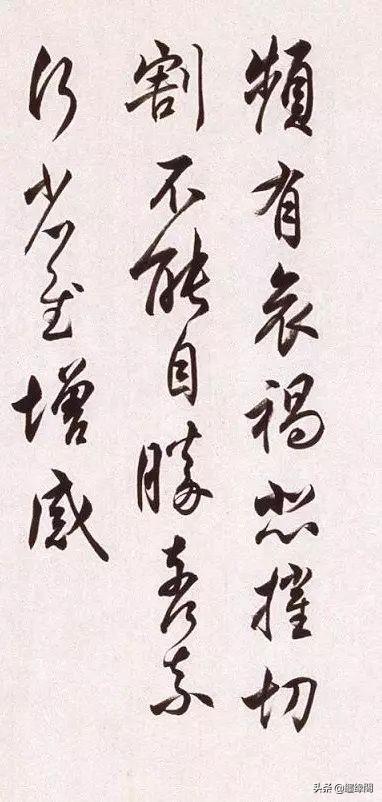 頻有哀禍悲摧切
割不能自勝奈何奈
何省慰增感
头条